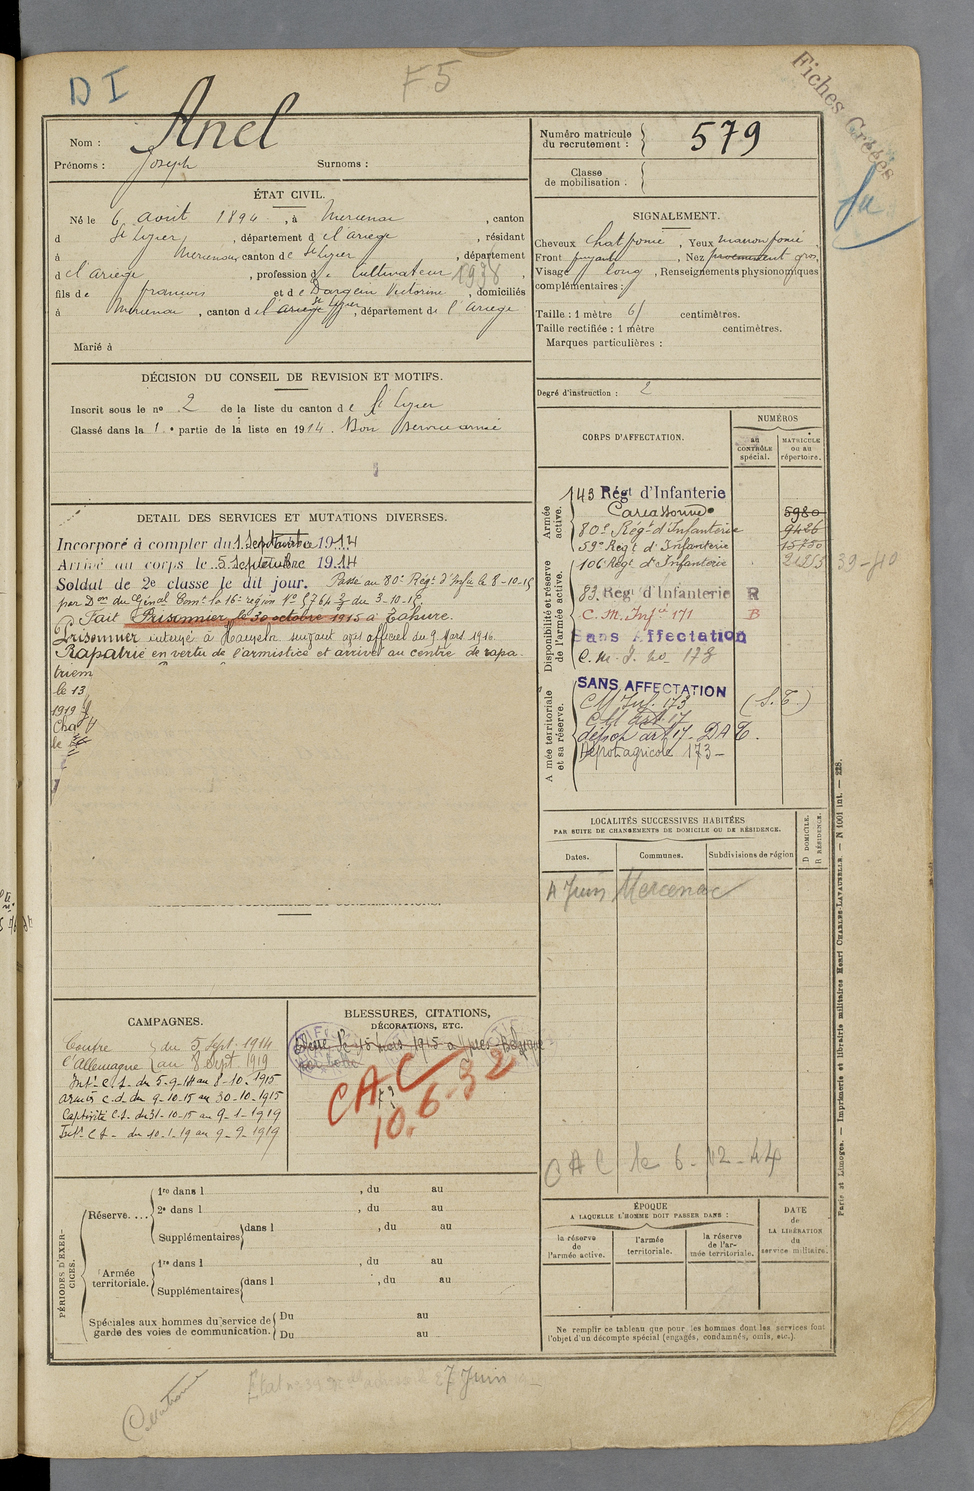 D I
F 5
Fiches Créées
Nom : Anel
Prénoms : Joseph Surnoms :
Numéro matricule du recrutement : 579
Classe de mobilisation :
ÉTAT CIVIL.
Né le 6 avril 1894, à Mercenac, canton
d St Lizier, département d e l'ariege, résidant
à Mercenac canton de St Lizier, département
d e l'ariege, profession de Cultivateur 1938,
fils de francois et de Dargein Victorine, domiciliés
à Mercenac, canton d e l'ariege St Lizier, département de l'ariege
Marié à
SIGNALEMENT.
Cheveux chat foncé, Yeux marron foncé,
Front fuyant, Nez proéminent gros,
Visage long, Renseignements physionomiques
complémentaires :
Taille : 1 mètre 61 centimètres.
Taille rectifiée : 1 mètre centimètres.
Marques particulières :
Degré d'instruction : 2
DÉCISION DU CONSEIL DE REVISION ET MOTIFS.
Inscrit sous le no 2 de la liste du canton de St Lizier
Classé dans la 1e partie de la liste en 1914. Bon service armé
DETAIL DES SERVICES ET MUTATIONS DIVERSES.
Incorporé à compter du 1 Septembre 1914
Arrivé au corps le 5 Septembre 1914
Soldat de 2e classe le dit jour. Passé au 80e Régt d'Infie le 8-10-15
par Don du Génal Comt la 16e région No 5764 3/3 du 3-10-15
Fait Prisonnier le 30 octobre 1915 à Tahure.
Prisonnier interné à suivant avis officiel du 9 Mars 1916.
Rapatrié en vertu de l'armistice et arrivé au centre de rapa-
triem
le 13
1919
le
CORPS D'AFFECTATION.
NUMÉROS
au CONTRÔLE spécial.
MATRICULE ou au répertoire.
Armée active.
143 Régt d'Infanterie
Carcassonne 5980
80e Régt d'Infanterie 9426
59e Régt d'Infanterie 15750
106 Régt d'Infanterie 21253 39-40
Disponibilité et réserve de l'armée active.
83 Régt d'Infanterie R
C. M. Infie 171 B
Sans Affectation
C. M. I. no 173
Armée territoriale et sa réserve.
SANS AFFECTATION
CM Inf. 173 (S.T.)
CM art. 17
dépôt art 17 - DAT.
Dépot agricole 173 -
LOCALITÉS SUCCESSIVES HABITÉES
PAR SUITE DE CHANGEMENTS DE DOMICILE OU DE RÉSIDENCE.
Dates. Communes. Subdivisions de région
D DOMICILE.
R RÉSIDENCE.
4 Juin Mercenac
CAMPAGNES.
Contre du 5 Sept. 1914
l'Allemagne au 8 Sept 1919
Intr C.S. du 5-9-14 au 8-10-1915
Armées c.d. du 9-10-15 au 30-10-1915
Captivité C.S. du 31-10-15 au 9-1-1919
Intr C.S. du 10-1-19 au 9-9-1919
BLESSURES, CITATIONS,
DÉCORATIONS, ETC.
1915 à Ypres Belgique
CAC
10.6-32
CAC le 6-12-44
PÉRIODES D'EXERCICES.
Réserve....
1re dans l , du au
2e dans l , du au
Supplémentaires dans l , du au
Armée territoriale.
1re dans l , du au
Supplémentaires dans l , du au
Spéciales aux hommes du service de garde des voies de communication.
Du au
Du au
ÉPOQUE
A LAQUELLE L'HOMME DOIT PASSER DANS :
la réserve de l'armée active.
l'armée territoriale.
la réserve de l'armée territoriale.
DATE de LA LIBÉRATION du service militaire.
Ne remplir ce tableau que pour les hommes dont les services font
l'objet d'un décompte spécial (engagés, condamnés, omis, etc.).
Paris et Limoges. — Imprimerie et librairie militaires Henri CHARLES-LAVAUZELLE. — N 1001 int. — 228.
7 Juin